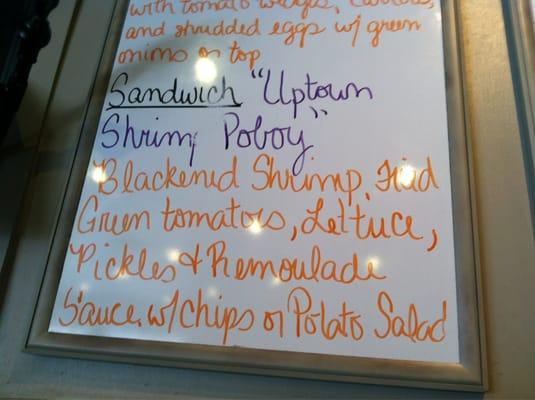 with tomato wedges, carrots,
and shrudded eggs w/ green
onions on top
Sandwich "Uptown
Shrimp Poboy"
Blackened Shrimp, Fried
Green tomatoes, Lettuce,
Pickles & Remoulade
Sauce w/ chips or Potato Salad